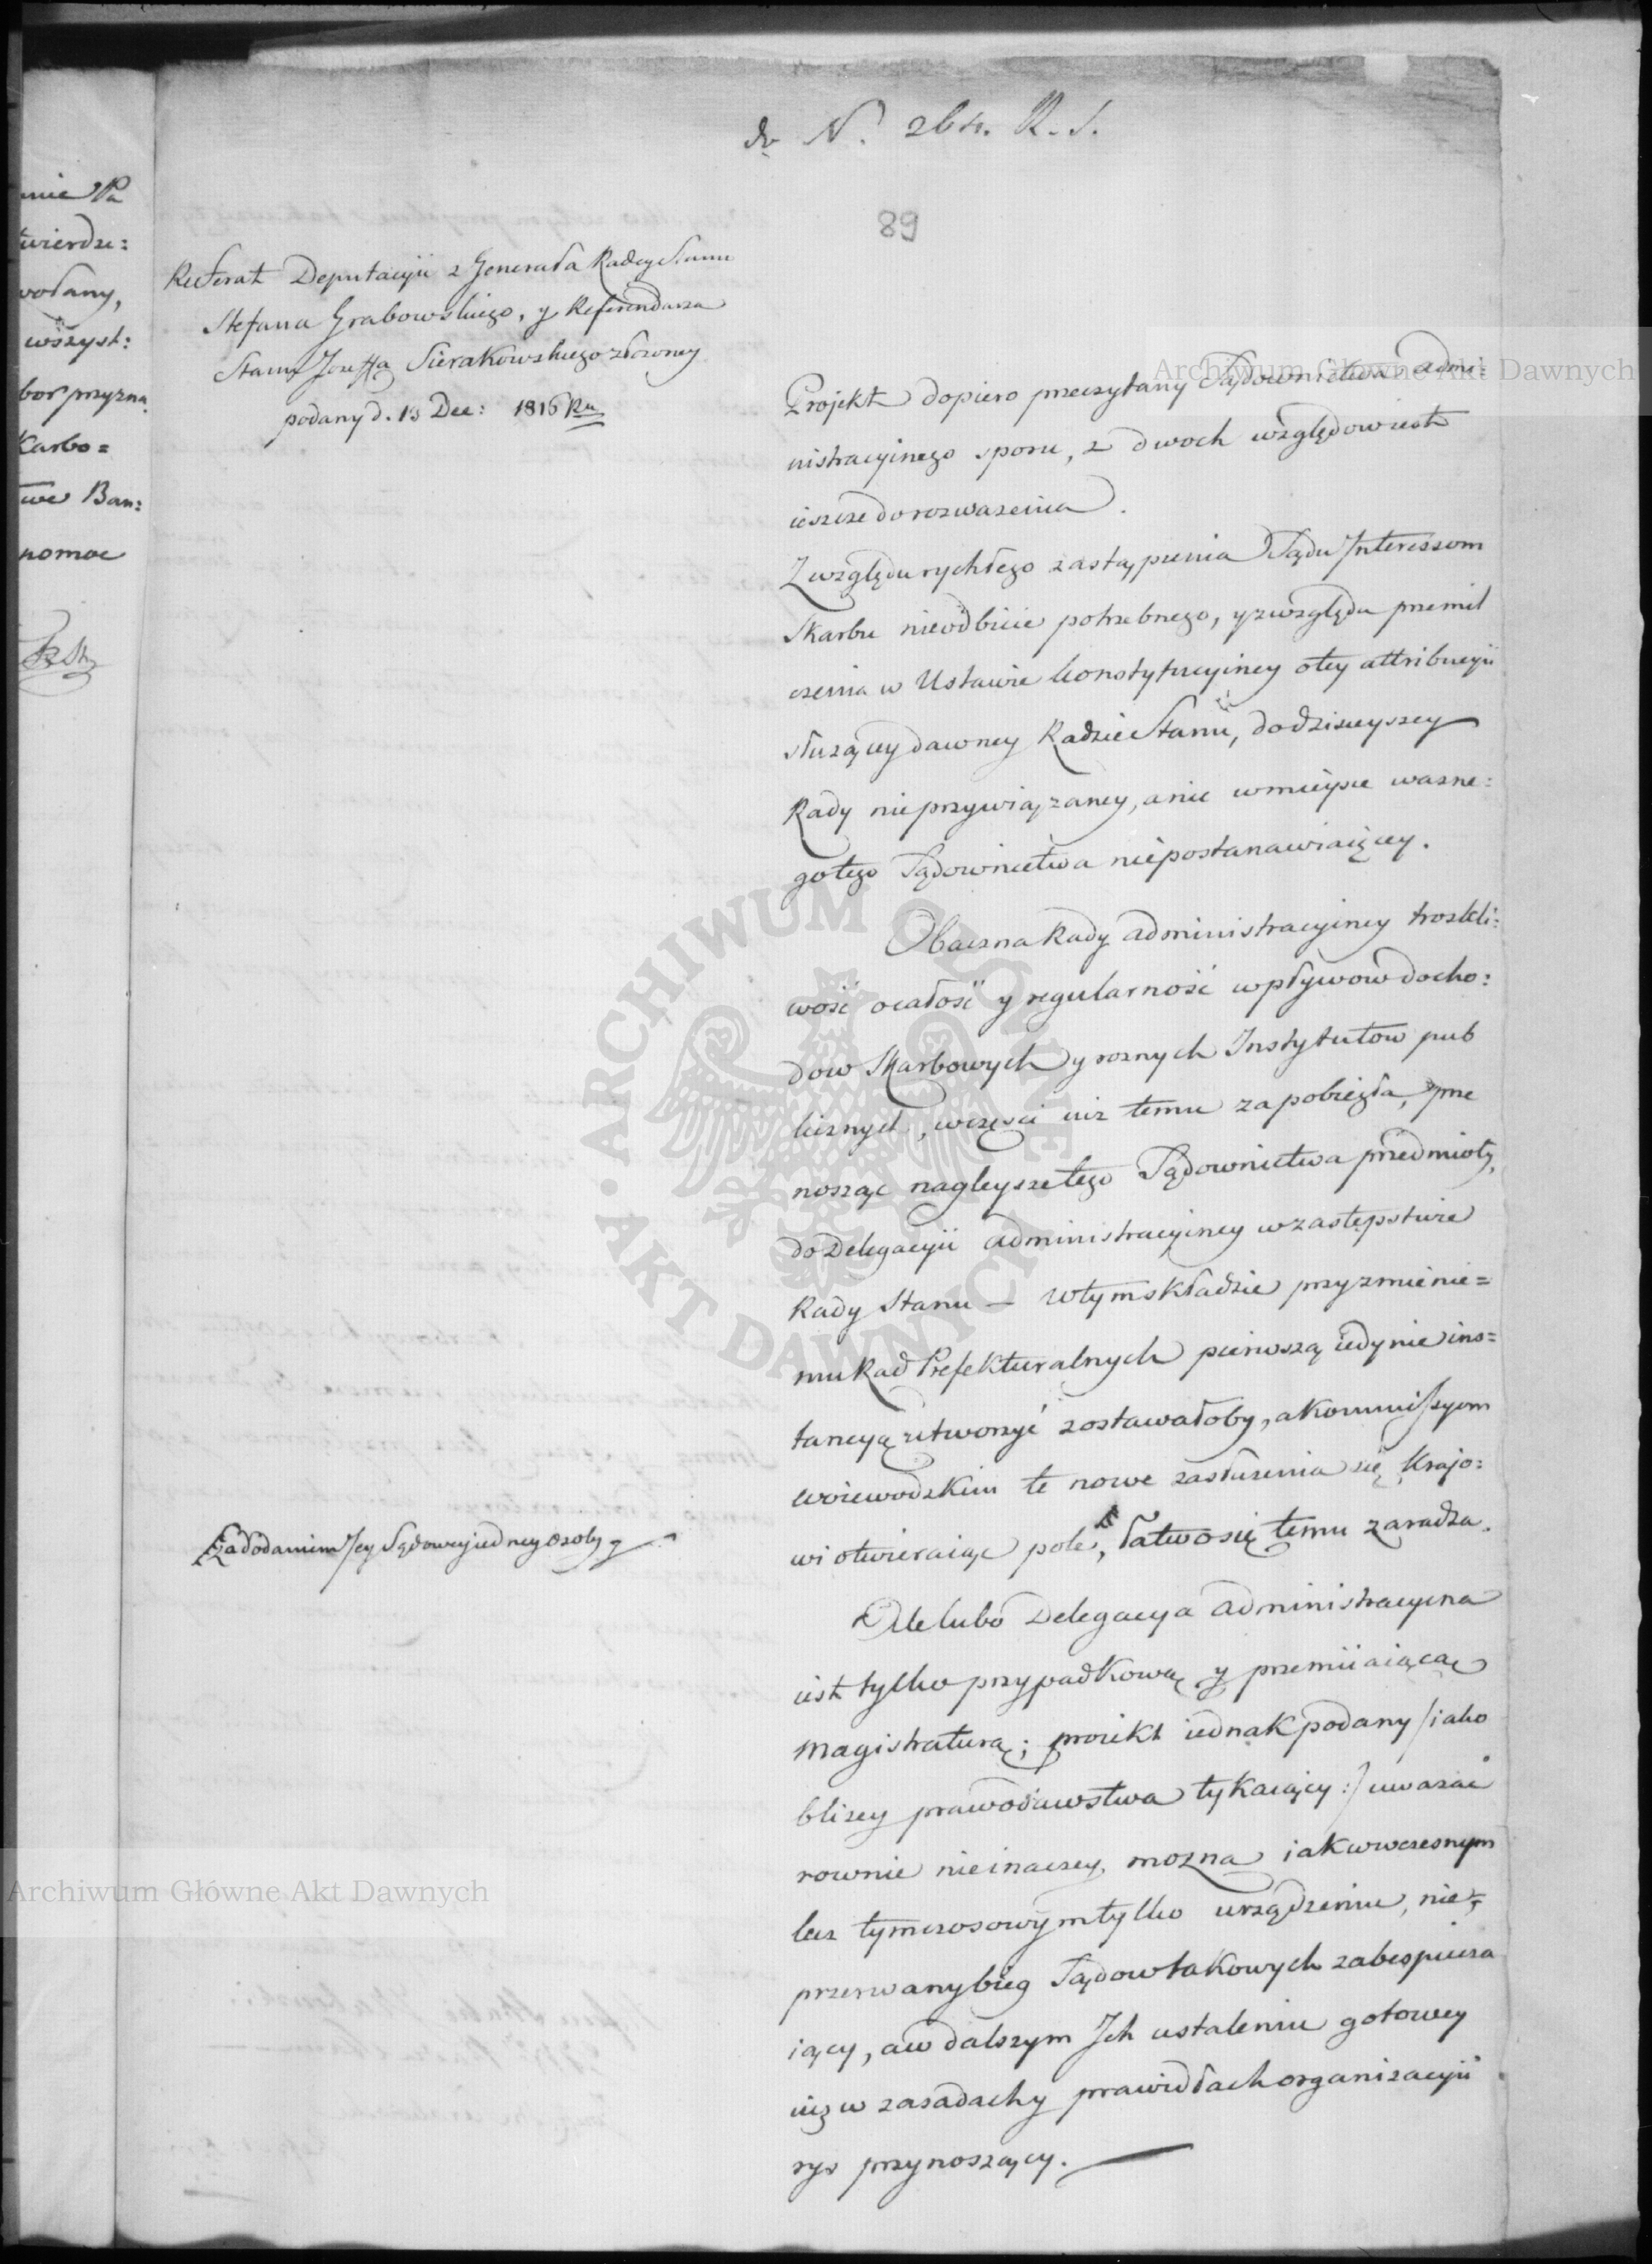 do N. 264. R. S.
89
Referat Deputacyii z Generała Radcy Stanu
Stefana Grabowskiego, y Referendarza
Stanu Jozeffa Sierakowskiego złozoney
podany d. 13 Dec: 1816 Ru
Projekt dopiero przeczytany Sądownictwa admi:
nistracyinego sporu, z dwoch względow iest
ieszcze do rozwazenia.
Z względu rychłego zastąpienia Sądu Interessom
Skarbu nieodbicie potrzebnego, y z względu przemil
czenia w Ustawie konstytucyiney o tey attribucyii
służącey dawney Radzie Stanu, do dzisieyszey
Rady nie przywiązaney, a nic w mieysce wazne:
go tego Sądownictwa niepostanawiaiącey.
Obaczna Rady administracyiney troskli:
wość o całość y regularność wpływow docho:
dow Skarbowych y roznych Instytutow pub
licznych, w częsci iuz temu zapobiegła, prze
nosząc nagleysze tego Sądownictwa przedmioty,
do Delegacyii administracyiney w zastępstwie
Rady Stanu — w tym składzie przyzmienie=
niu Rad Prefekturalnych pierwszą iedynie ins=
tancyą utworzyć zostawałoby, a kommissyom
woiewodzkim te nowe zasłuzenia się krajo:
wi otwieraiąc pole, łatwo się temu zaradza.
za dodaniem Jey Sądowey iedney osoby
Ale lubo Delegacya administracyina
iest tylko przypadkową y przemiiaiącą
magistraturą; proiekt iednak podany /: iako
blizey prawodawstwa tykaiący :/ uwazać
rownie nieinaczey, mozna iak w wczesnym
lecz tymczosowym tylko urządzeniu, nie=
przerwany bieg Sądow takowych zabespiecza
iący, a w dalszym Ich ustaleniu gotowey
iuz w zasadach y prawidłach organizacyii
rys przynoszący.
nie Pa
twierdze:
wołany,
wszyst:
bor przyzna
Karbo=
we Ban:
nomoc
Archiwum Główne Akt Dawnych
ARCHIWUM GŁÓWNE AKT DAWNYCH
Archiwum Główne Akt Dawnych